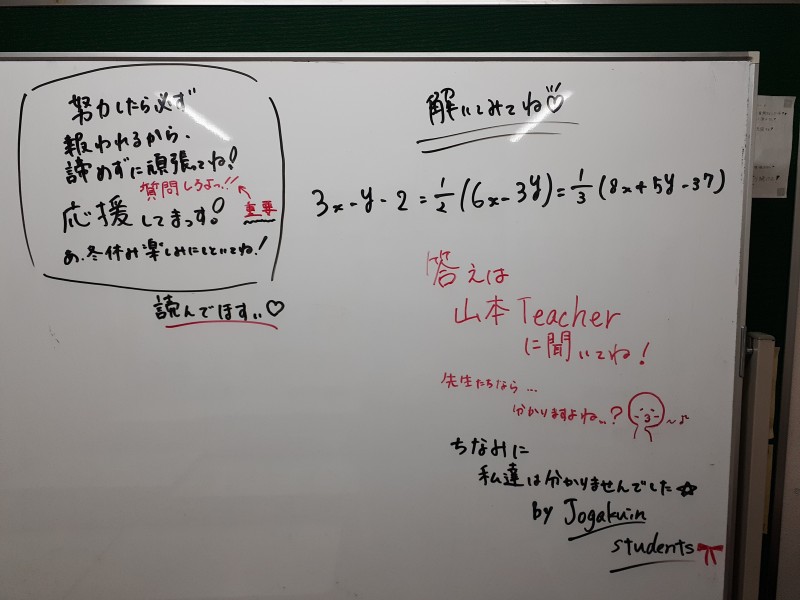 努力したら必ず
報われるから、
諦めずに頑張ってね!
質問しろよっ!!
応援してまっす!
重要
あ、冬休み楽しみにしといてね!
読んでほすぃ♡
解いてみてね♡
3x-y-2=1/2(6x-3y)=1/3(8x+5y-37)
答えは
山本Teacher
に聞いてね!
先生たちなら...
分かりますよね..?
~♪
ちなみに
私達は分かりませんでした☆
by Jogakuin
students